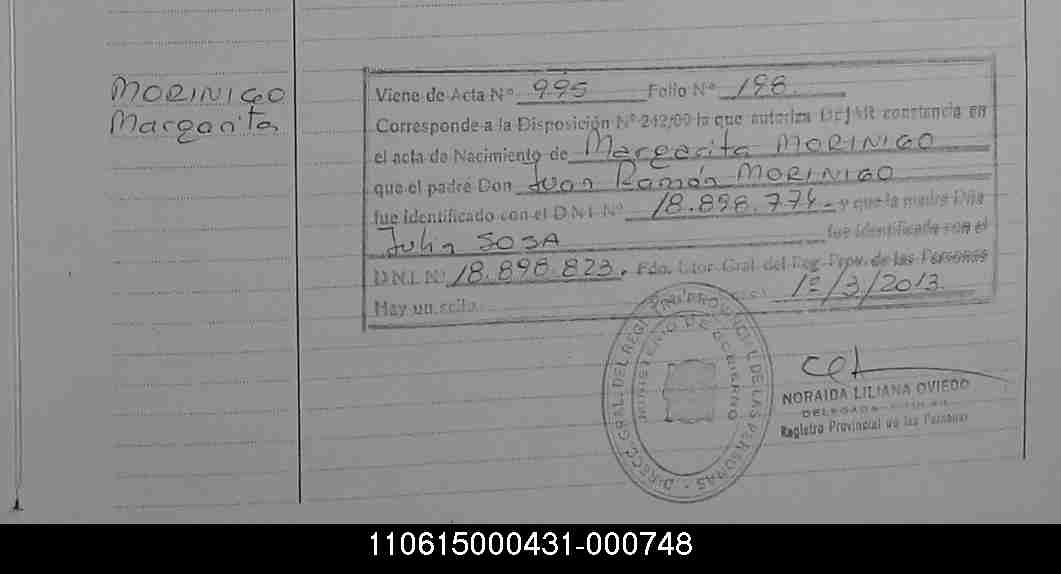 MORINIGO
Margarita
Viene de Acta Nº 995 Folio Nº 198.
Corresponde a la Disposición Nº 242/00 la que autoriza Dejar constancia en
el acta de Nacimiento de Margarita MORINIGO
que el padre Don Juan Ramón MORINIGO
fue identificado con el DNI Nº 18.898.774. y que la madre Dña
Julia SOSA fue identificada con el
D.N.I. Nº 18.898.823. Fdo. Dtor. Gral. del Reg. Prov. de las Personas
Hay un sello. 1º/3/2013.
DIRECC. GRAL. DEL REG. PROVINCIAL DE LAS PERSONAS
MINISTERIO DE GOBIERNO
NORAIDA LILIANA OVIEDO
DELEGADA
Registro Provincial de las Personas
110615000431-000748